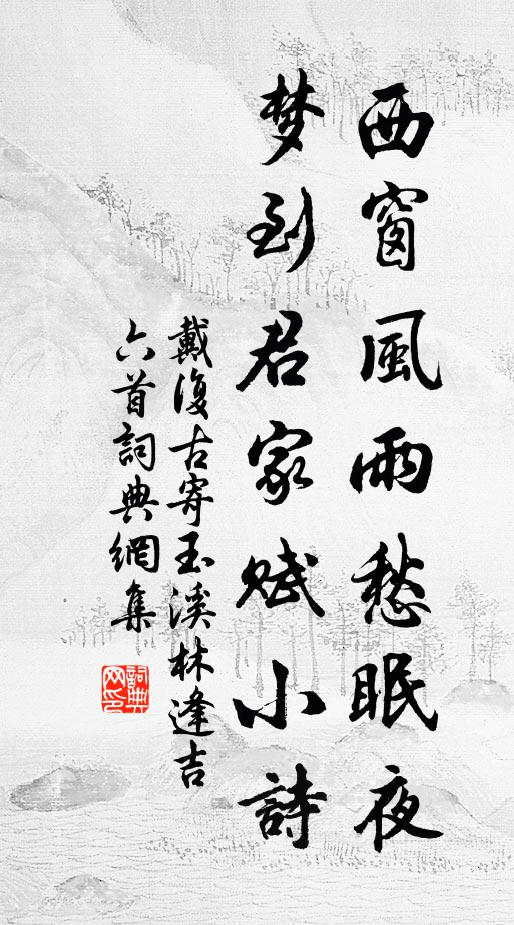 西窗風雨愁眠夜
梦到君家赋小詩
戴復古寄玉溪林逢吉
六首詞典網集
詞典网印